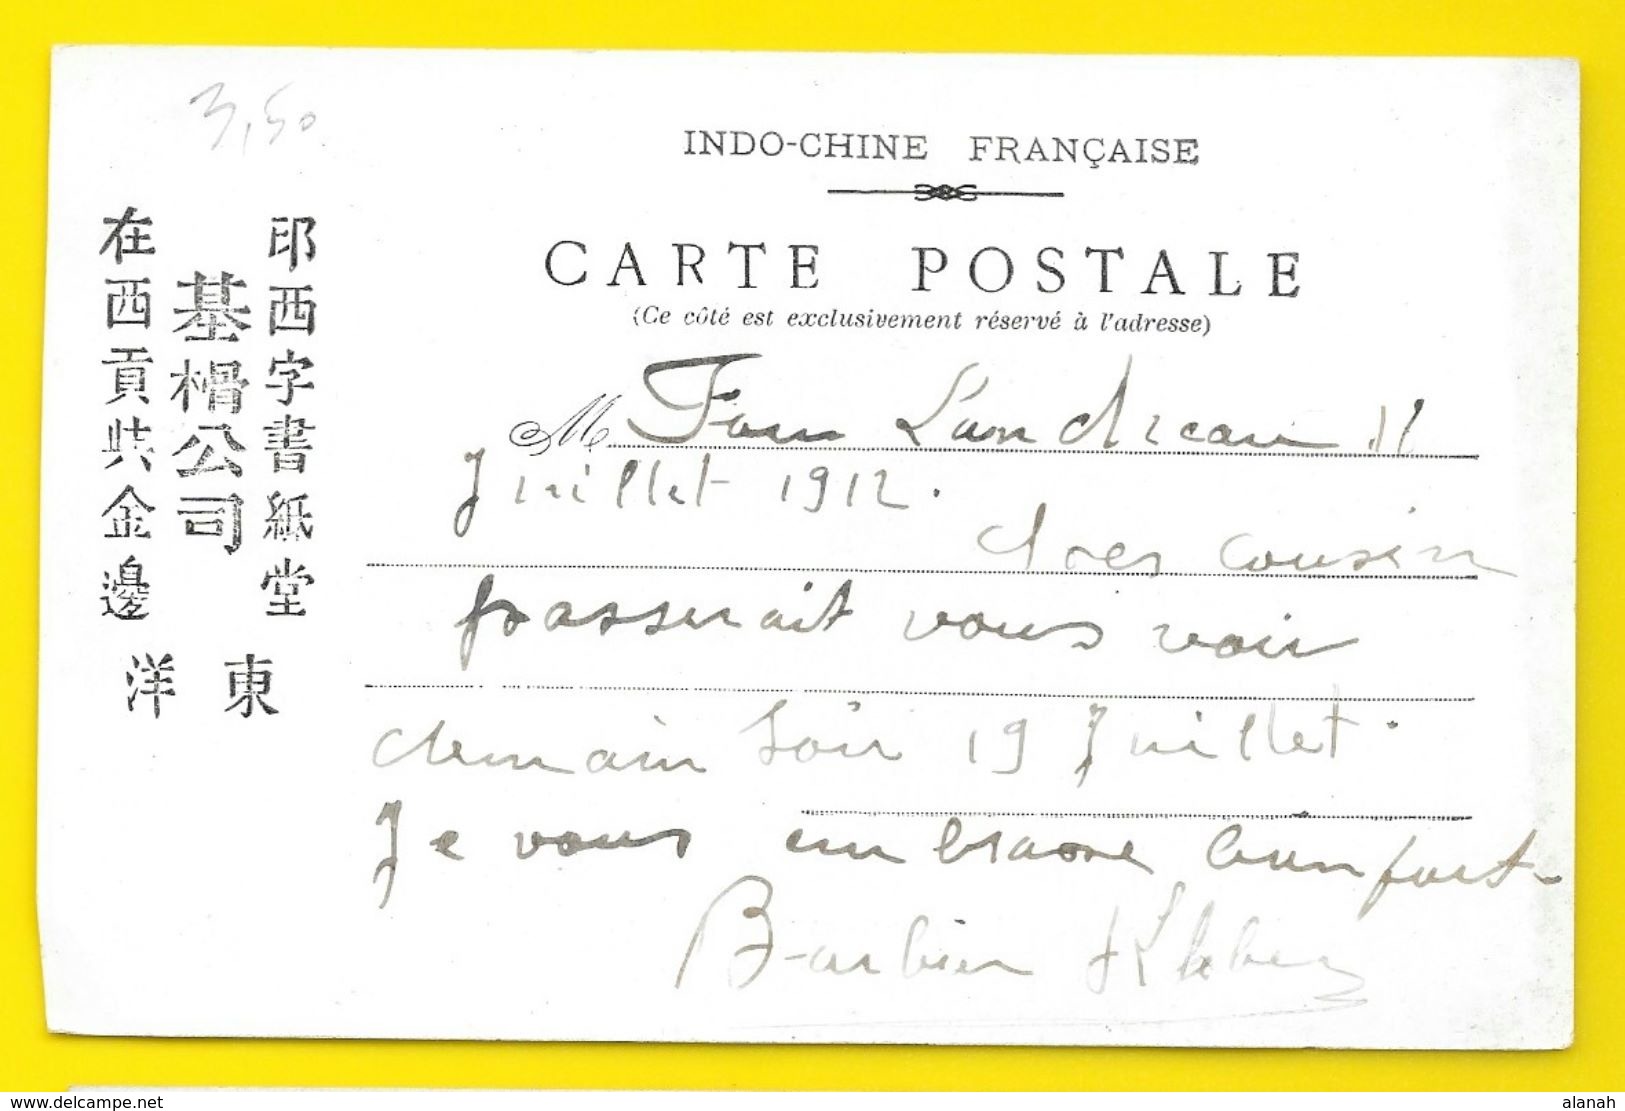 3,50
INDO-CHINE FRANÇAISE
CARTE POSTALE
(Ce côté est exclusivement réservé à l'adresse)
印西字書紙堂
基榾公司
在西貢共金邊
東洋
M
Juillet 1912.
cousin
passerait vous voir
demain soir 19 Juillet.
Je vous embrasse bien fort-
Barbier Kleber
www.delcampe.net
alanah